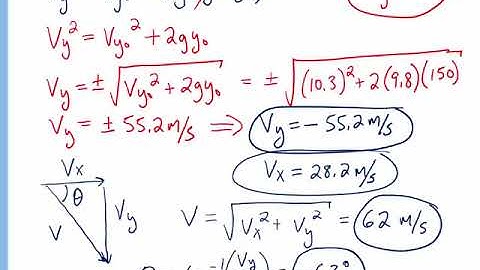 Vy² = Vy₀² + 2gy₀
Vy = ± √(Vy₀² + 2gy₀) = ± √((10.3)² + 2(9.8)(150))
Vy = ± 55.2 m/s ⟹ Vy = - 55.2 m/s
Vx = 28.2 m/s
Vx
θ
Vy
V
V = √(Vx² + Vy²) = 62 m/s